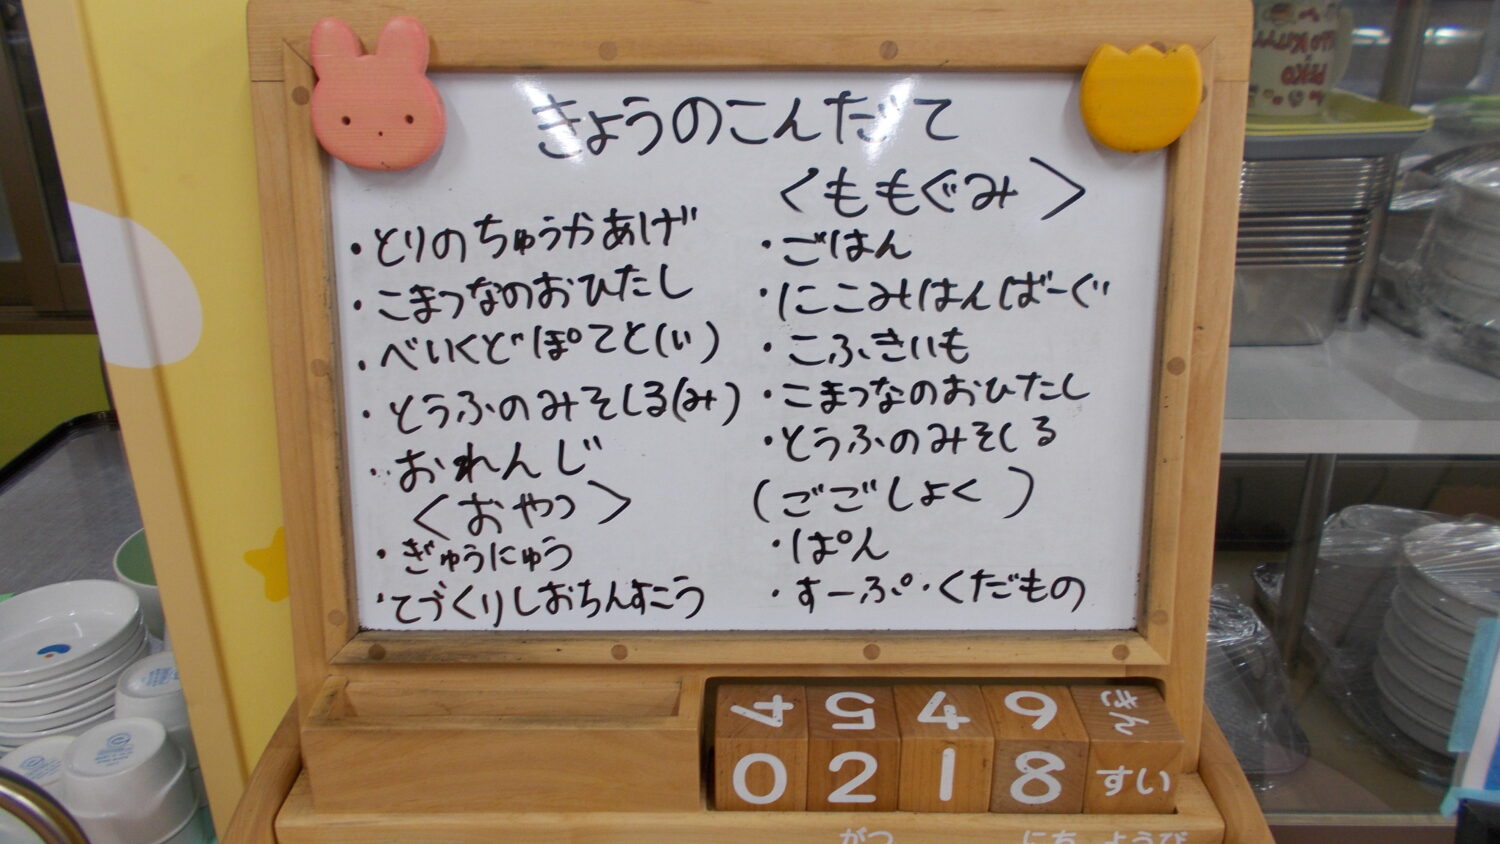 きょうのこんだて
・とりのちゅうかあげ
・こまつなのおひたし
・べいくどぽてと(い)
・とうふのみそしる(み)
・おれんじ
<おやつ>
・ぎゅうにゅう
・てづくりしおちんすこう
<ももぐみ>
・ごはん
・にこみはんばーぐ
・こふきいも
・こまつなのおひたし
・とうふのみそしる
(ごごしょく)
・ぱん
・すーぷ・くだもの
4 5 4 6 きん
0 2 1 8 すい
がつ にち ようび